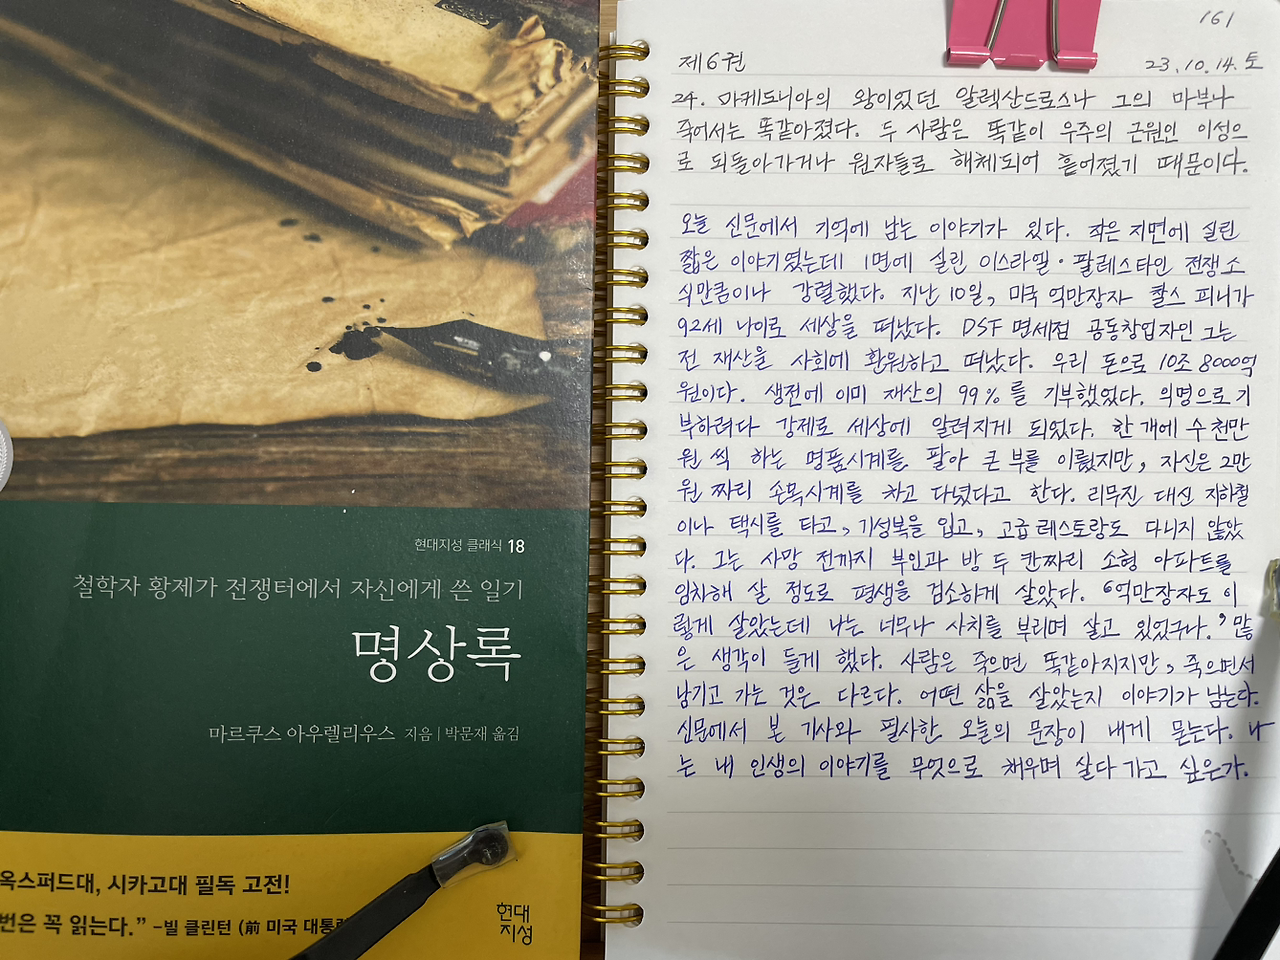 현대지성 클래식 18
철학자 황제가 전쟁터에서 자신에게 쓴 일기
명상록
마르쿠스 아우렐리우스 지음 | 박문재 옮김
옥스퍼드대, 시카고대 필독 고전!
번은 꼭 읽는다.” -빌 클린턴 (前 미국 대통령
현대
지성
161
제6권
23.10.14.토
24. 마케도니아의 왕이었던 알렉산드로스나 그의 마부나
죽어서는 똑같아졌다. 두 사람은 똑같이 우주의 근원인 이성으
로 되돌아가거나 원자들로 해체되어 흩어졌기 때문이다.
오늘 신문에서 기억에 남는 이야기가 있다. 작은 지면에 실린
짧은 이야기였는데 1면에 실린 이스라엘·팔레스타인 전쟁 소
식만큼이나 강렬했다. 지난 10일, 미국 억만장자 촬스 피니가
92세 나이로 세상을 떠났다. DSF 면세점 공동창업자인 그는
전 재산을 사회에 환원하고 떠났다. 우리 돈으로 10조 8000억
원이다. 생전에 이미 재산의 99%를 기부했었다. 익명으로 기
부하려다 강제로 세상에 알려지게 되었다. 한 개에 수 천만
원 씩 하는 명품시계를 팔아 큰 부를 이뤘지만, 자신은 2만
원 짜리 손목시계를 차고 다녔다고 한다. 리무진 대신 지하철
이나 택시를 타고, 기성복을 입고, 고급 레스토랑도 다니지 않았
다. 그는 사망 전까지 부인과 방 두 칸짜리 소형 아파트를
임차해 살 정도로 평생을 검소하게 살았다. ‘억만장자도 이
렇게 살았는데 나는 너무나 사치를 부리며 살고 있었구나.’ 많
은 생각이 들게 했다. 사람은 죽으면 똑같아지지만, 죽으면서
남기고 가는 것은 다르다. 어떤 삶을 살았는지 이야기가 남는다.
신문에서 본 기사와 필사한 오늘의 문장이 내게 묻는다. 나
는 내 인생의 이야기를 무엇으로 채우며 살다 가고 싶은가.